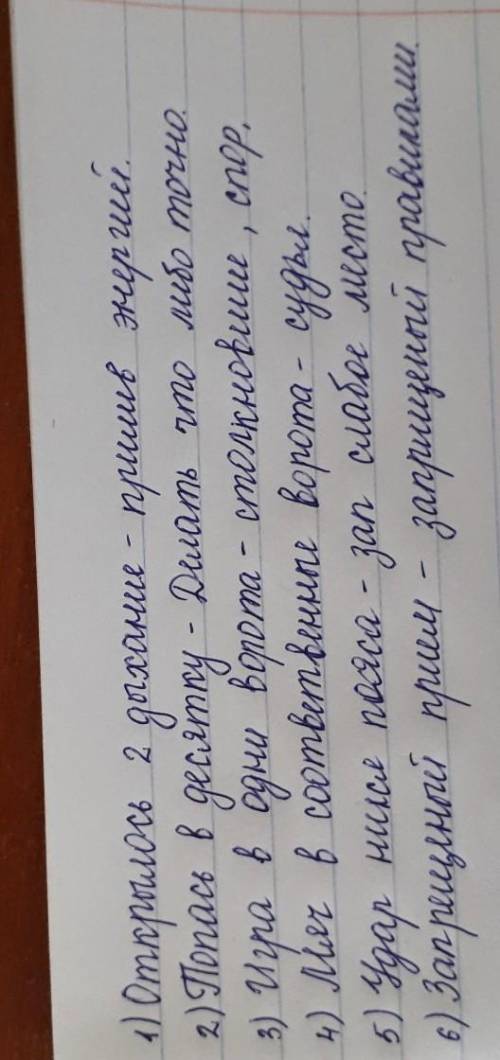 1) Открылось 2 дыхание - прилив энергий.
2) Попась в десятку - Делать что либо точно.
3) Игра в одни ворота - столкновение, спор.
4) Мяч в соответвенные ворота - судья.
5) Удар ниже пояса - зап слабое место.
6) Запрещеный прием - заприщеный правилами.